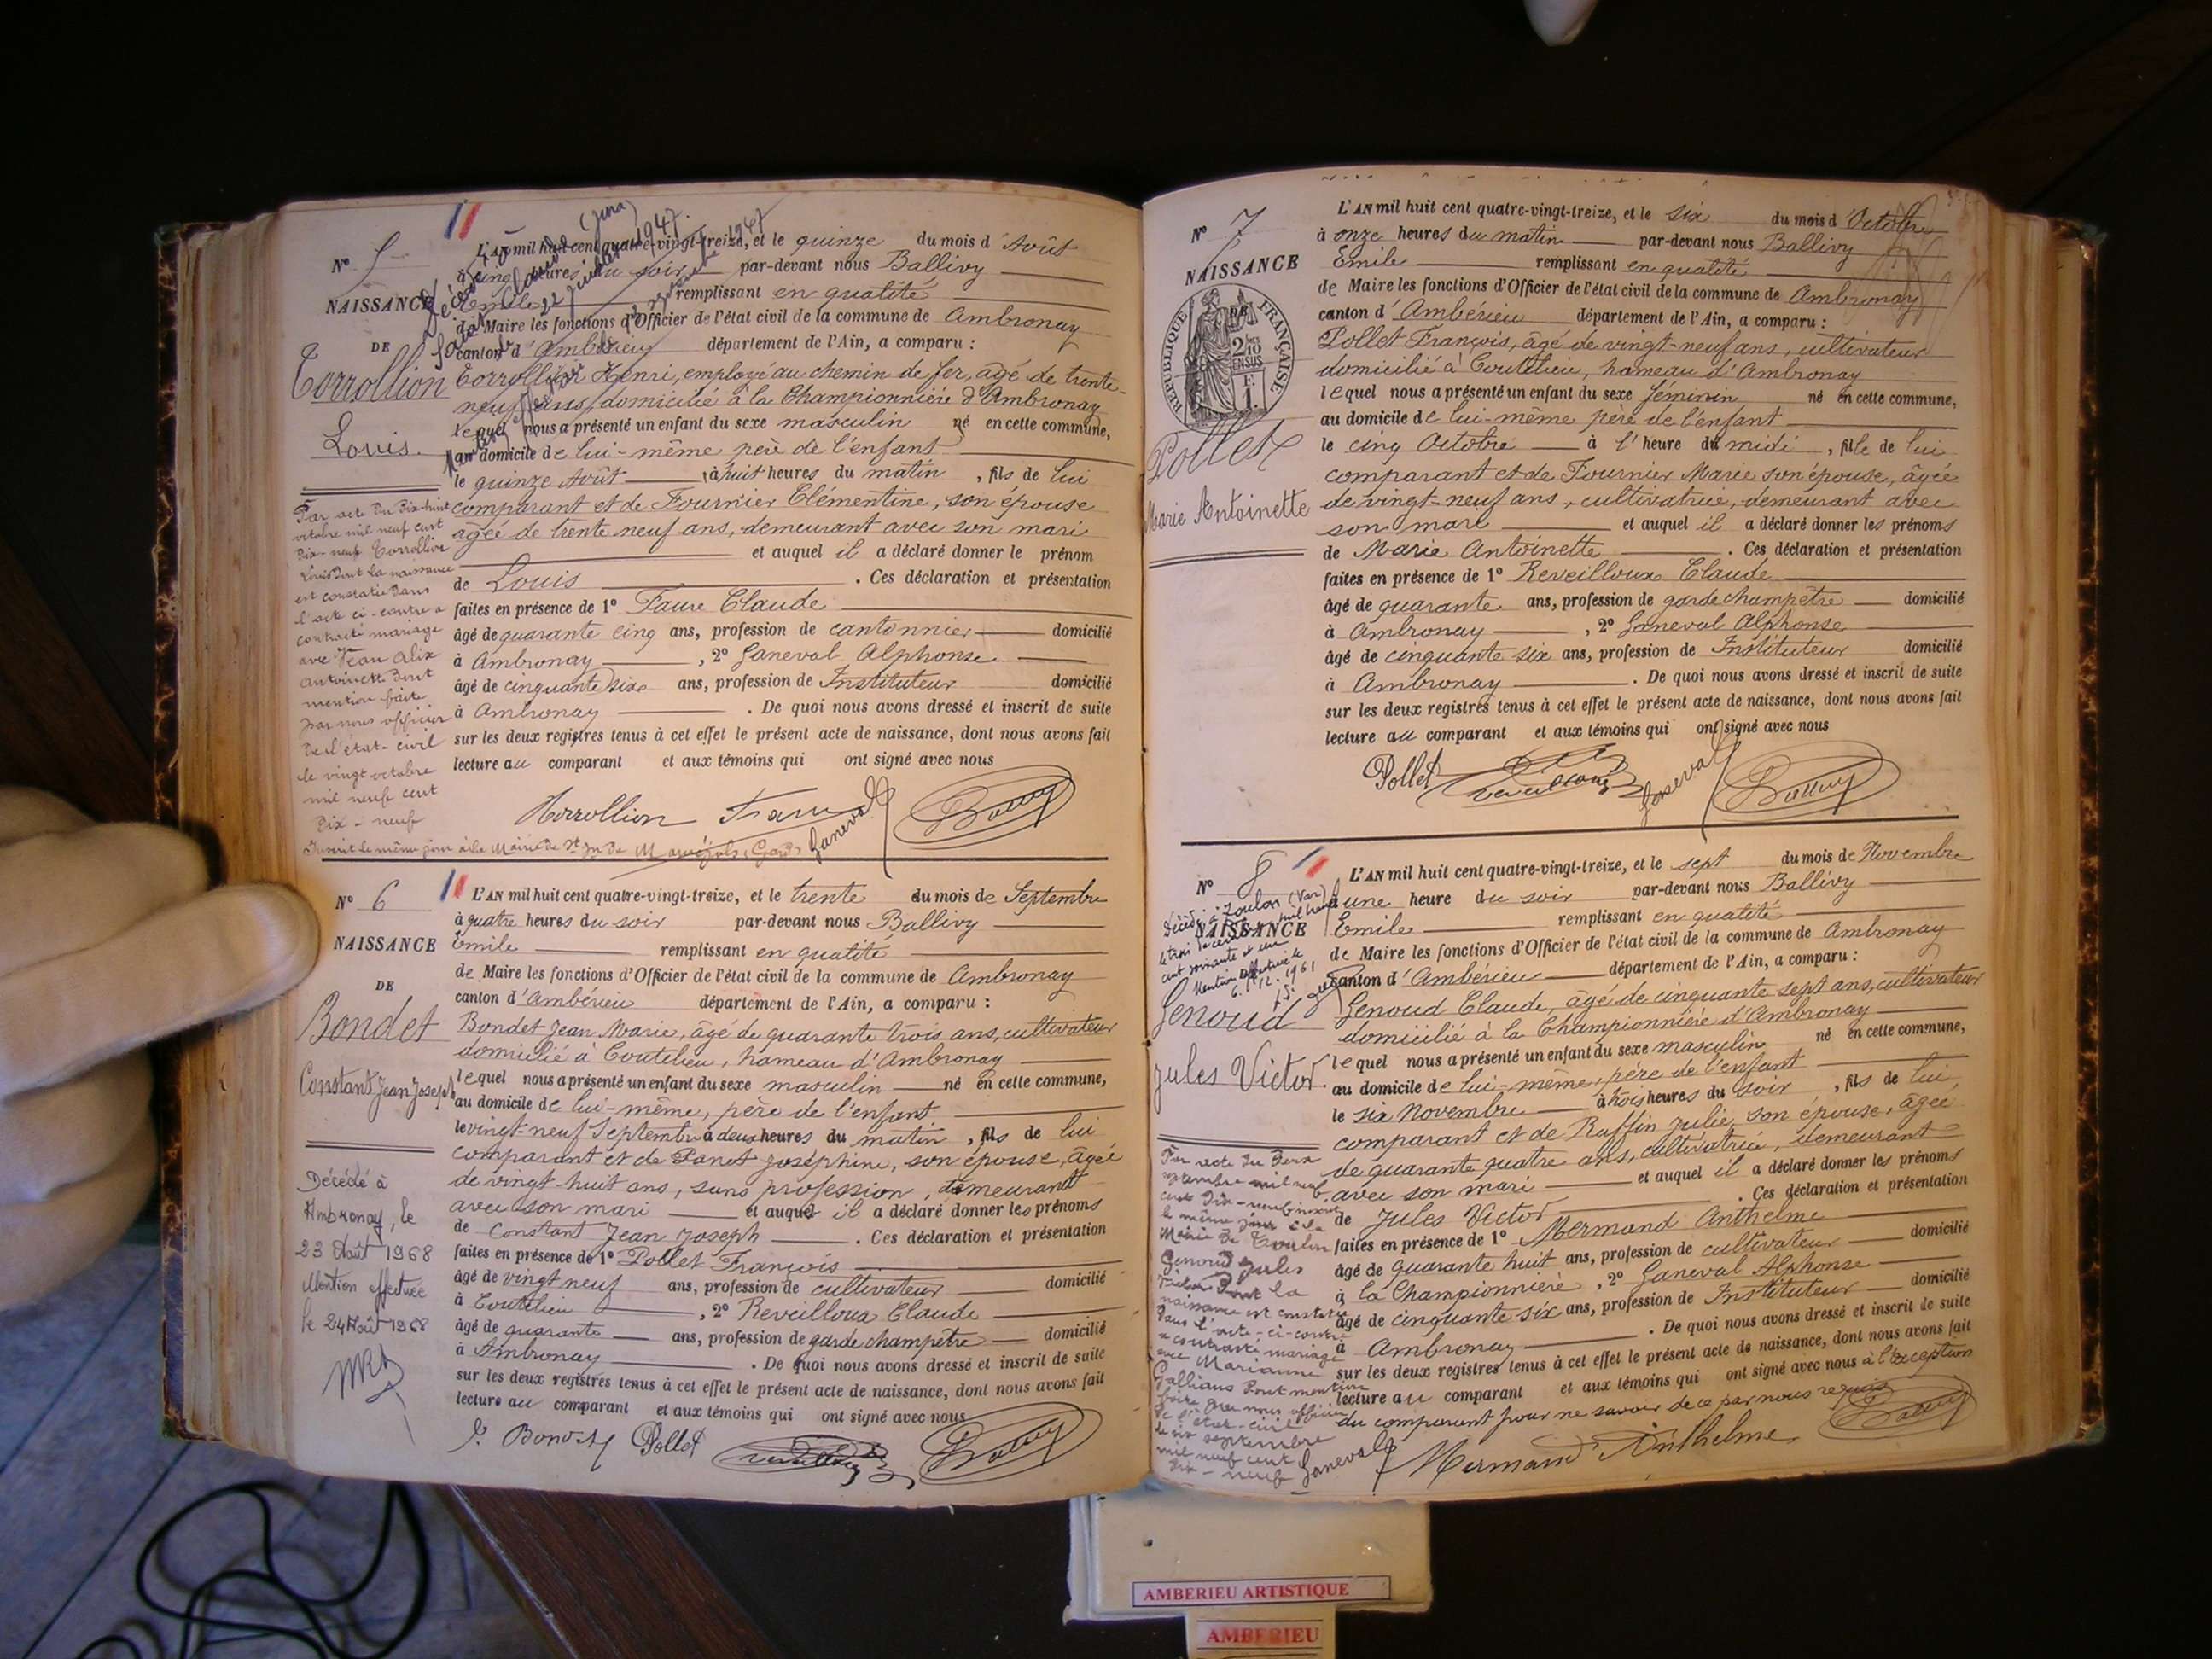 Nº 5
NAISSANCE
DE
Corrollion
Louis.
L'AN mil huit cent quatre-vingt-treize, et le quinze du mois d'Août
à cinq heures du soir par-devant nous Ballivy
Emile remplissant en qualité
de Maire les fonctions d'Officier de l'état civil de la commune de Ambronay
canton d'Ambérieu département de l'Ain, a comparu :
Corrollion Henri, employé au chemin de fer, âgé de trente-
neuf ans, domicilié à la Championnière d'Ambronay
lequel nous a présenté un enfant du sexe masculin né en cette commune,
au domicile de lui-même père de l'enfant
le quinze Août à huit heures du matin, fils de lui
comparant et de Fournier Clémentine, son épouse
âgée de trente neuf ans, demeurant avec son mari
et auquel il a déclaré donner le prénom
de Louis. Ces déclaration et présentation
faites en présence de 1º Faure Claude
âgé de quarante cinq ans, profession de cantonnier domicilié
à Ambronay, 2º Janeval Alphonse
âgé de cinquante six ans, profession de Instituteur domicilié
à Ambronay. De quoi nous avons dressé et inscrit de suite
sur les deux registres tenus à cet effet le présent acte de naissance, dont nous avons fait
lecture au comparant et aux témoins qui ont signé avec nous
Par acte du dix-huit
octobre mil neuf cent
dix-neuf Corrollion
Louis dont la naissance
est constatée dans
l'acte ci-contre a
contracté mariage
avec Jean Alix
Antoinette dont
mention faite
par nous officier
de l'état-civil
le vingt octobre
mil neuf cent
dix-neuf
Corrollion Janeval Ballivy
Nº 6
NAISSANCE
DE
Bondet
Constant Jean Joseph
L'AN mil huit cent quatre-vingt-treize, et le trente du mois de Septembre
à quatre heures du soir par-devant nous Ballivy
Emile remplissant en qualité
de Maire les fonctions d'Officier de l'état civil de la commune de Ambronay
canton d'Ambérieu département de l'Ain, a comparu :
Bondet Jean Marie, âgé de quarante trois ans, cultivateur
domicilié à Coutelieu, hameau d'Ambronay
lequel nous a présenté un enfant du sexe masculin né en cette commune,
au domicile de lui-même, père de l'enfant
le vingt-neuf Septembre à deux heures du matin, fils de lui
comparant et de Panet Joséphine, son épouse, âgée
de vingt-huit ans, sans profession, demeurant
avec son mari et auquel il a déclaré donner les prénoms
de Constant Jean Joseph. Ces déclaration et présentation
faites en présence de 1º Pollet François
âgé de vingt neuf ans, profession de cultivateur domicilié
à Coutelieu, 2º Reveilloux Claude
âgé de quarante ans, profession de garde champêtre domicilié
à Ambronay. De quoi nous avons dressé et inscrit de suite
sur les deux registres tenus à cet effet le présent acte de naissance, dont nous avons fait
lecture au comparant et aux témoins qui ont signé avec nous
Décédé à
Ambronay, le
23 Août 1968
Mention effectuée
le 24 Août 1968
Pollet Ballivy
Nº 7
NAISSANCE
DE
RÉPUBLIQUE FRANÇAISE
Pollet
Marie Antoinette
L'AN mil huit cent quatre-vingt-treize, et le six du mois d'Octobre
à onze heures du matin par-devant nous Ballivy
Emile remplissant en qualité
de Maire les fonctions d'Officier de l'état civil de la commune de Ambronay
canton d'Ambérieu département de l'Ain, a comparu :
Pollet François, âgé de vingt-neuf ans, cultivateur
domicilié à Coutelieu, hameau d'Ambronay
lequel nous a présenté un enfant du sexe féminin né en cette commune,
au domicile de lui-même père de l'enfant
le cinq Octobre à l'heure du midi, fille de lui
comparant et de Fournier Marie son épouse, âgée
de vingt-neuf ans, cultivatrice, demeurant avec
son mari et auquel il a déclaré donner les prénoms
de Marie Antoinette. Ces déclaration et présentation
faites en présence de 1º Reveilloux Claude
âgé de quarante ans, profession de garde champêtre domicilié
à Ambronay, 2º Janeval Alphonse
âgé de cinquante six ans, profession de Instituteur domicilié
à Ambronay. De quoi nous avons dressé et inscrit de suite
sur les deux registres tenus à cet effet le présent acte de naissance, dont nous avons fait
lecture au comparant et aux témoins qui ont signé avec nous
Pollet Janeval Ballivy
Nº 8
NAISSANCE
Genoud
Jules Victor
L'AN mil huit cent quatre-vingt-treize, et le sept du mois de Novembre
à une heure du soir par-devant nous Ballivy
Emile remplissant en qualité
de Maire les fonctions d'Officier de l'état civil de la commune de Ambronay
canton d'Ambérieu département de l'Ain, a comparu :
Genoud Claude, âgé de cinquante sept ans, cultivateur
domicilié à la Championnière d'Ambronay
lequel nous a présenté un enfant du sexe masculin né en cette commune,
au domicile de lui-même, père de l'enfant
le six Novembre à trois heures du soir, fils de lui,
comparant et de Ruffin Julie, son épouse, âgée
de quarante quatre ans, cultivatrice, demeurant
avec son mari et auquel il a déclaré donner les prénoms
de Jules Victor. Ces déclaration et présentation
faites en présence de 1º Mermand Anthelme
âgé de quarante huit ans, profession de cultivateur domicilié
à la Championnière, 2º Janeval Alphonse
âgé de cinquante six ans, profession de Instituteur domicilié
à Ambronay. De quoi nous avons dressé et inscrit de suite
sur les deux registres tenus à cet effet le présent acte de naissance, dont nous avons fait
lecture au comparant et aux témoins qui ont signé avec nous à l'exception
du comparant pour ne savoir de ce par nous requis
Janeval Mermand Anthelme Ballivy
AMBERIEU ARTISTIQUE
AMBERIEU